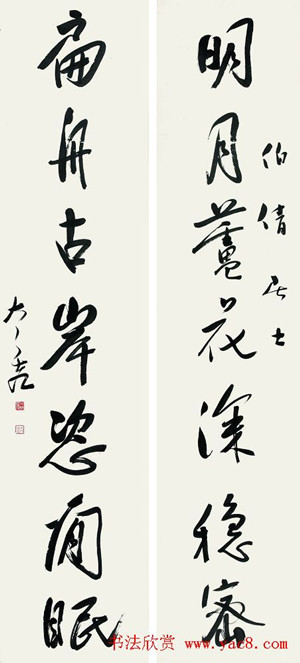 明月蘆花深穩密
伯倩居士
扁舟古岸恣閒眠
大千爰
书法欣赏 www.yac8.com